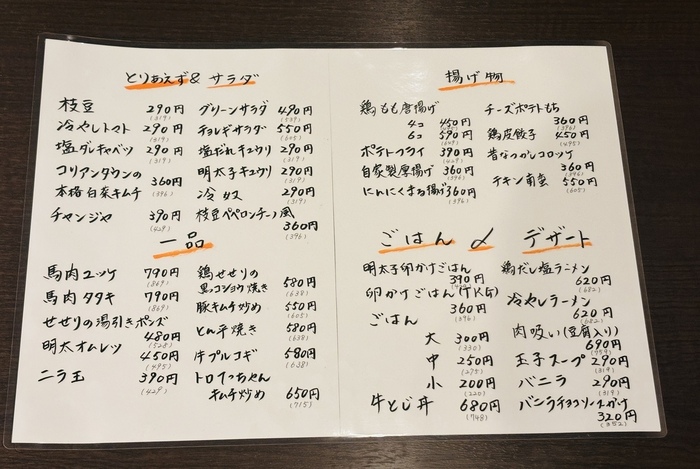 とりあえず& サラダ
枝豆 290円
(319)
冷やしトマト 290円
(319)
塩ダレキャベツ 290円
(319)
コリアンタウンの
本格白菜キムチ 360円
(396)
チャンジャ 390円
(429)
グリーンサラダ 490円
(539)
チョレギサラダ 550円
(605)
塩だれキュウリ 290円
(319)
明太子キュウリ 290円
(319)
冷奴 290円
(319)
枝豆ペペロンチーノ風
360円
(396)
一品
馬肉ユッケ 790円
(869)
馬肉タタキ 790円
(869)
せせりの湯引きポンズ
480円
(528)
明太オムレツ 450円
(495)
ニラ玉 390円
(429)
鶏せせりの
黒コショウ焼き 580円
(638)
豚キムチ炒め 550円
(605)
とん平焼き 580円
(638)
牛プルコギ 580円
(638)
トロてっちゃん
キムチ炒め 650円
(715)
揚げ物
鶏もも唐揚げ
4コ 450円
6コ 590円
(649)
ポテトフライ 390円
(429)
自家製厚揚げ 360円
(396)
にんにくまる揚げ 360円
(396)
チーズポテトもち
360円
(396)
鶏皮餃子 450円
(495)
昔なつかしコロッケ
360円
(396)
チキン南蛮 550円
(605)
ごはん 〆 デザート
明太子卵かけごはん
390円
卵かけごはん(TKG)
360円
(396)
ごはん
大 300円
(330)
中 250円
(275)
小 200円
(220)
牛とじ丼 680円
(748)
鶏だし塩ラーメン
620円
(682)
冷やしラーメン
620円
(682)
肉吸い(豆腐入り)
690円
(759)
玉子スープ 290円
(319)
バニラ 290円
(319)
バニラチョコソースがけ
320円
(352)